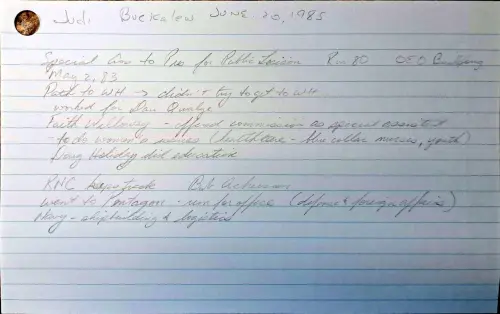 Judi Buckalew June 20, 1985
Special Ass to Pres for Public Liaison Rm 80 OEO Building
May 2, 83
Path to WH → didn't try to get to WH
worked for Dan Quayle
Faith Whittlesey - offered commission as special assistant
- to do women's services (healthcare - blue collar nurses, youth)
Doug Holiday did education
RNC Bob
went to Pentagon - run for office (defense & foreign affairs)
Navy - shipbuilding & logistics